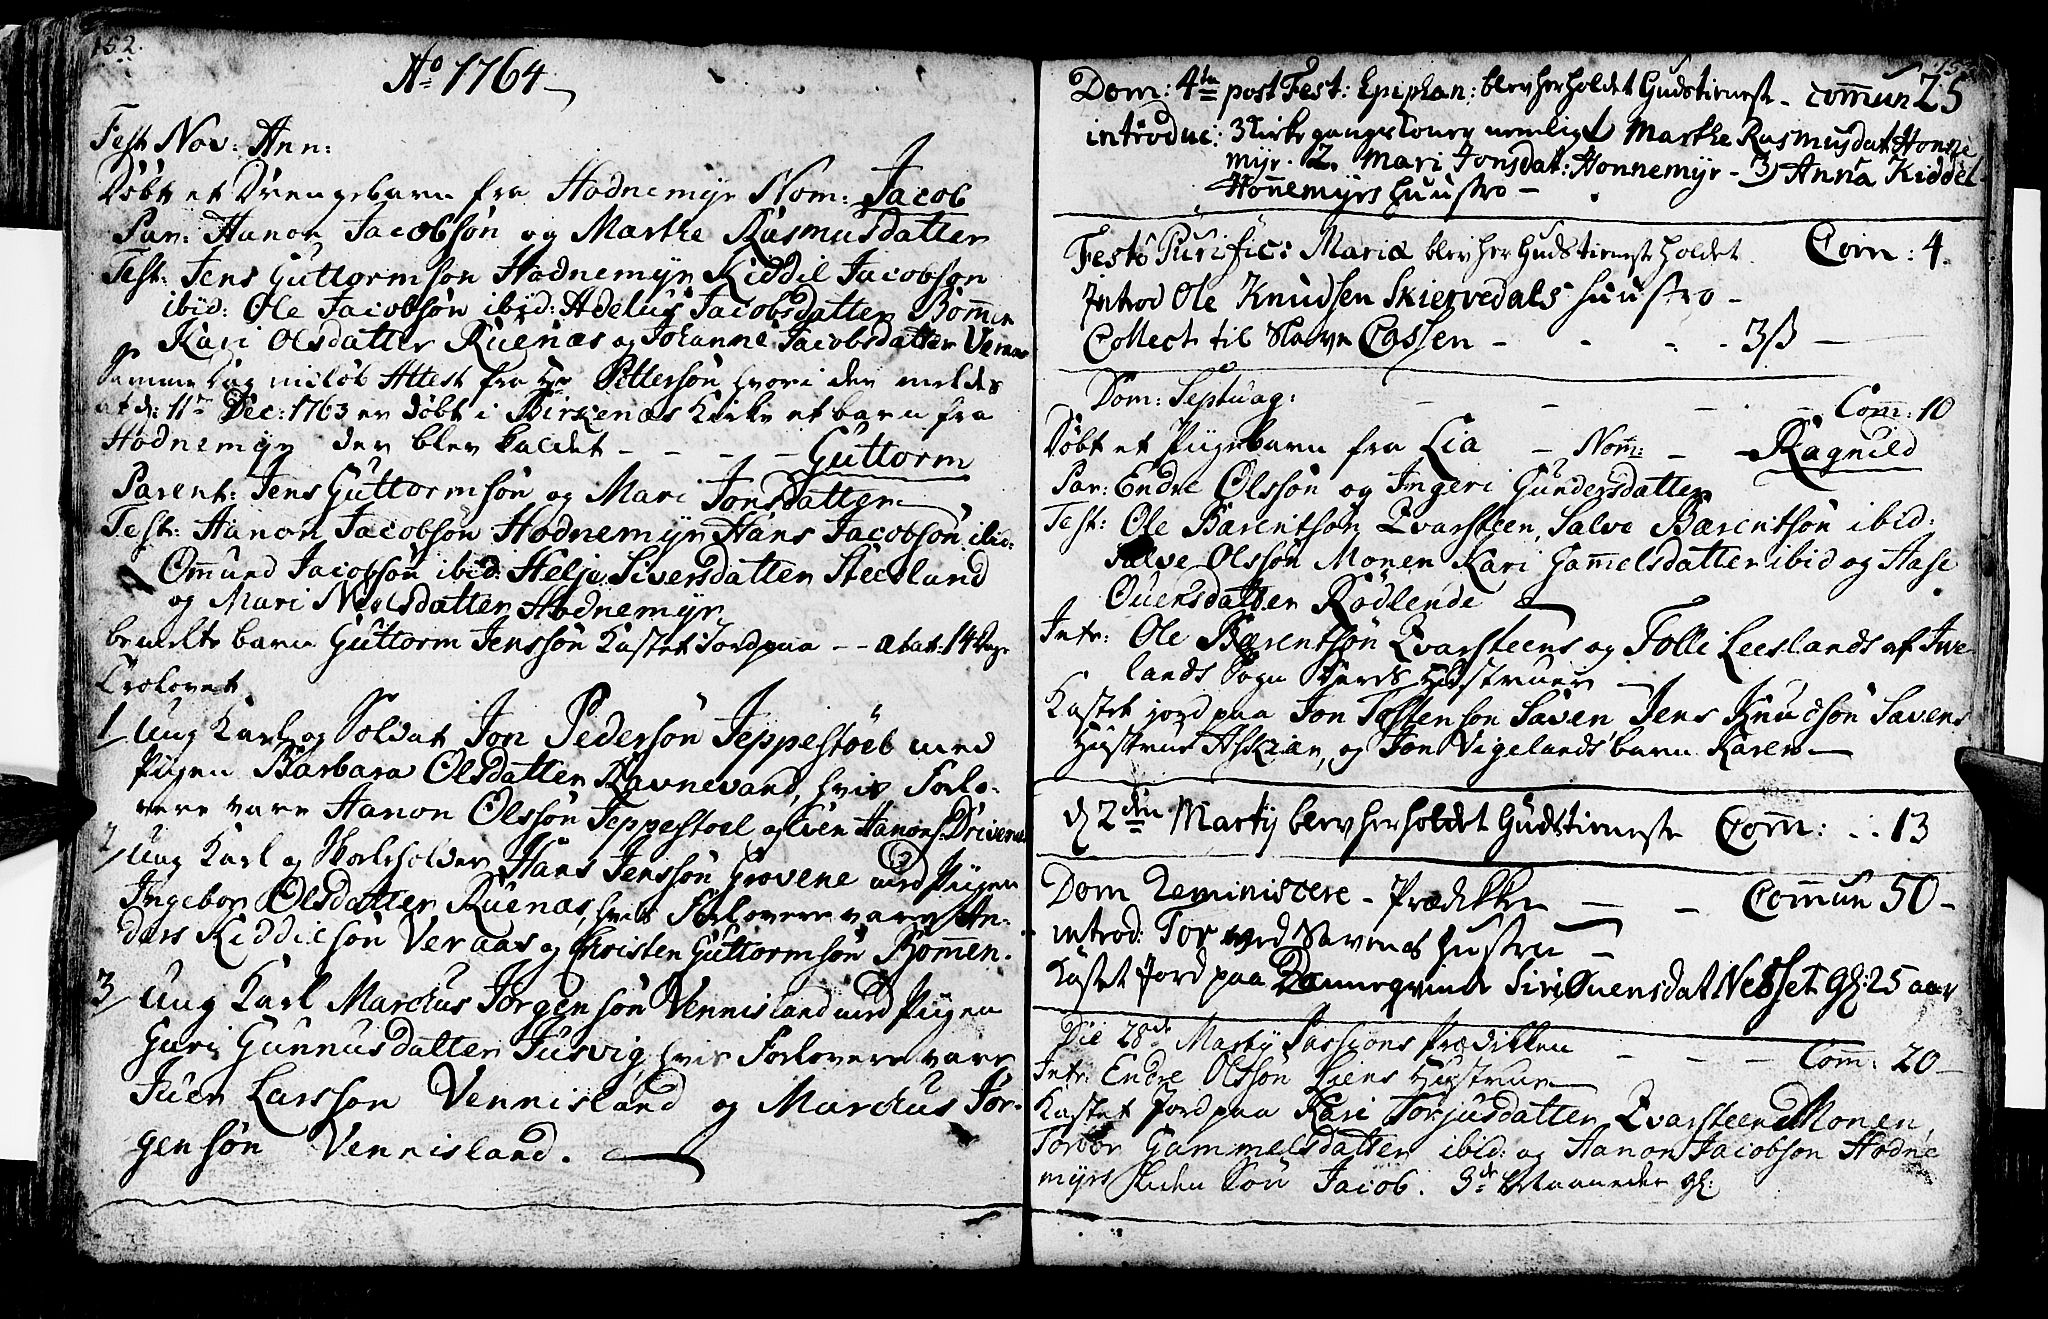 152.
Ao 1764
Fest Nov: Ann:
Döbt et Drengebarn fra Hodnemyr Nom: Jacob
Par: Hanon Jacobsön og Marthe Rasmusdatter
Test: Jens Guttormsön Hodnemyr Kiddil Jacobsön
ibid: Ole Jacobsön ibid: Adelus Jacobsdatter Bommen
Kari Olsdatter Ruenæs og Johanne Jacobsdatter Veraas
Samme Dag indlöb Attest fra Hr Pettersön hvori der meldes
at d: 11te Dec: 1763 er döbt i Birkenæs Kirke et barn fra
Hodnemyr der blev kaldet - - - - Guttorm
Parent: Jens Guttormsön og Mari Jonsdatter
Test: Hanon Jacobsön Hodnemyr Hans Jacobsön ibid:
Omund Jacobsön ibid: Helje Siversdatter Steesland
og Mari Nielsdatter Hodnemyr
bemelte barn Guttorm Jenssön Kastet Jord paa - - ætat: 14 Dage
Trolovet
1/ Ung Karl og Soldat Jon Pedersön Jeppestöel med
Pigen Barbara Olsdatter Ravnevand, hvis Forlo-
vere vare Hanon Olsson Jeppestoel og Even Hanons: Drivenes
2/ Ung Karl og Skoleholder Hans Jenssön Grovene med Pigen
Ingebor Olsdatter Ruenæs, hvis Forlovere vare An-
ders Kiddilsön Veraas og Christen Guttormsön Bommen.
3/ Ung Karl Marcus Jörgensön Vennisland med Pigen
Guri Gunnusdatter Jusvig hvis Forlovere vare
Juer Larsson Vennisland og Marcus Jör-
gensön Vennisland.
153.
Dom: 4ta post Fest: Epiphan: blev her holdet Gudstieneste - commun 25
introduc: 3 Kirkegangs Koner nemlig 1 Marthe Rasmusdat: Honne
myr. 2. Mari Jonsdat: Honnemyr - 3) Anna Kiddel
Honnemyrs huustro -
Festo Purific: Mariæ blev her Gudstieneste holdet Com: 4.
Introd Ole Knudsen Skiervedals huustro -
Collect: til Slave Cassen - - - - 3ß -
Dom: Septuag: - - - Com: 10
Döbt et Pigebarn fra Lia - Nom: - Ragnild
Par: Endre Olssön og Ingeri Gundersdatter
Test: Ole Bærentsön Qvarsteen, Salve Bærentsön ibid:
Salve Olssön Monen Kari Gammelsdatter ibid og Aase
Ouensdatter Rödlende
Intr: Ole Bærentsön Qvarsteens og Tolle Leeslands af Ive-
lands Sogn Hustruer -
Kastet jord paa Jon Tostenson Saven Jens Knudsön Savens
Hustrue Askier, og Jon Vigelands barn Karen -
d 2den Martij blev her holdet Gudstieneste Com: .. 13
Dom Reminiscere - Prædikken - - Commun 50 -
introd: Tor Savenes hustru -
Kastet Jord paa Dannegvinde Siri Ouensdat Nesset gl: 25 aar
Die 28de Martij Passions Prædikken - - - Com: 20
Intr: Endre Olssön Liens Hustrue
Kastet Jord paa Kari Torjusdatter Qvarsteen Monen,
Torbor Gammelsdatter ibid: og Hanon Jacobsön Hodne
myrs liden Sön Jacob. 3de Maaneder gl: